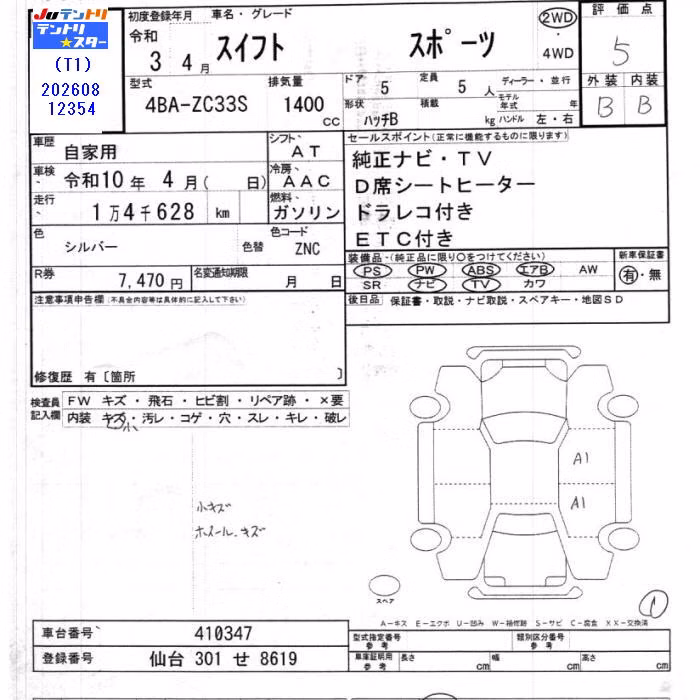 JUテントリ
テントリ
★スター
(T1)
202608
12354
初度登録年月 車名・グレード
令和
3 4月 スイフト スポーツ
2WD
・
4WD
評価点
5
外装 内装
B B
型式 排気量
4BA-ZC33S 1400 CC
ドア 5 定員 5 人 ディーラー・並行
モデル年式 年
形状 ハッチB 積載 kg ハンドル 左・右
車歴 自家用
シフト AT
車検 令和10年 4月( 日)
冷房 AAC
走行 1万4千628 km
燃料 ガソリン
色 シルバー 色替
色コード ZNC
R券 7,470円 名変通知期限 月 日
セールスポイント(正常に機能するものに限ります)
純正ナビ・TV
D席シートヒーター
ドラレコ付き
ETC付き
装備品・(純正品に限り○をつけてください) 新車保証書
PS PW ABS エアB AW 有・無
SR ナビ TV カワ
後日品 保証書・取説・ナビ取説・スペアキー・地図SD
注意事項申告欄(不具合内容等は具体的に記入して下さい)
修復歴 有〔箇所 〕
検査員記入欄
FW キズ・飛石・ヒビ割・リペア跡・×要
内装 キズ・汚レ・コゲ・穴・スレ・キレ・破レ
小
小キズ
ホイール.キズ
A1
A1
スペア
1
A-キズ E-エクボ U-凹み W-補修跡 S-サビ C-腐食 XX-交換済
車台番号 410347
登録番号 仙台 301 せ 8619
型式指定番号 参考 類別区分番号 参考
車庫証明用 参考 長さ cm 幅 cm 高さ cm